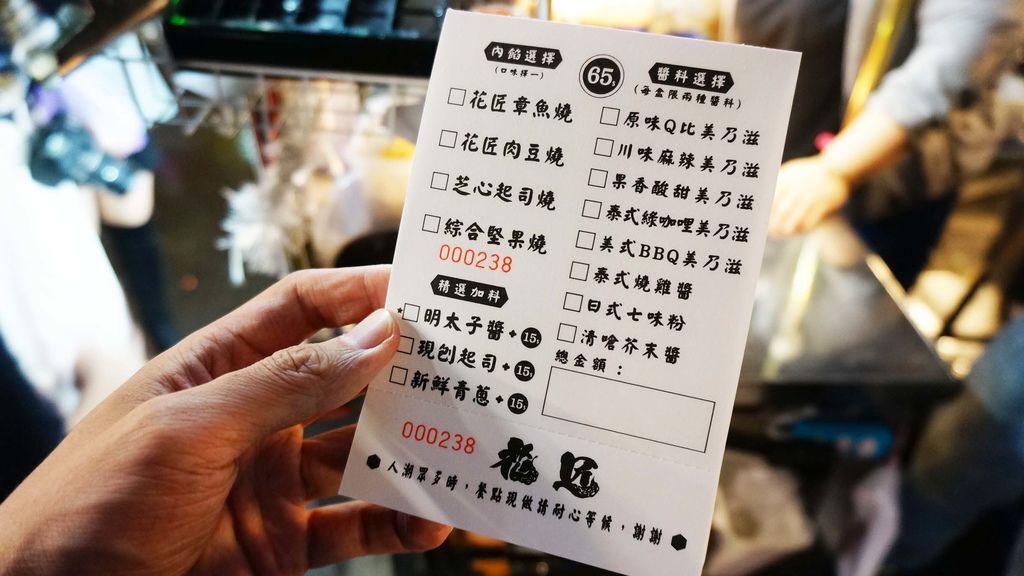 內餡選擇
(口味擇一)
65元
醬料選擇
(每盒限兩種醬料)
花匠章魚燒
花匠肉豆燒
芝心起司燒
綜合堅果燒
000238
原味Q比美乃滋
川味麻辣美乃滋
果香酸甜美乃滋
泰式綠咖哩美乃滋
美式BBQ美乃滋
泰式燒雞醬
日式七味粉
清嗆芥末醬
精選加料
明太子醬+15元
現刨起司+15元
新鮮青蔥+15元
總金額：
000238
花匠
人潮眾多時，餐點現做請耐心等候，謝謝